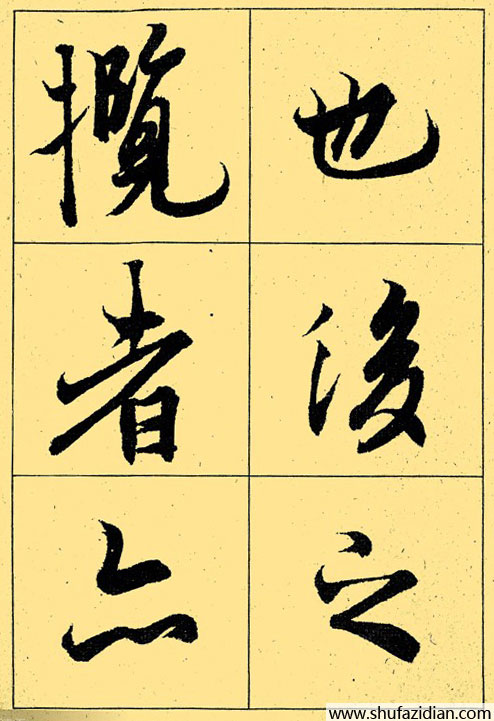 也後之
攬者亦
www.shufazidian.com